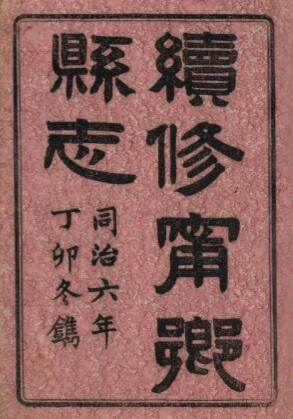 續修甯鄉
縣志
同治六年
丁卯冬鐫